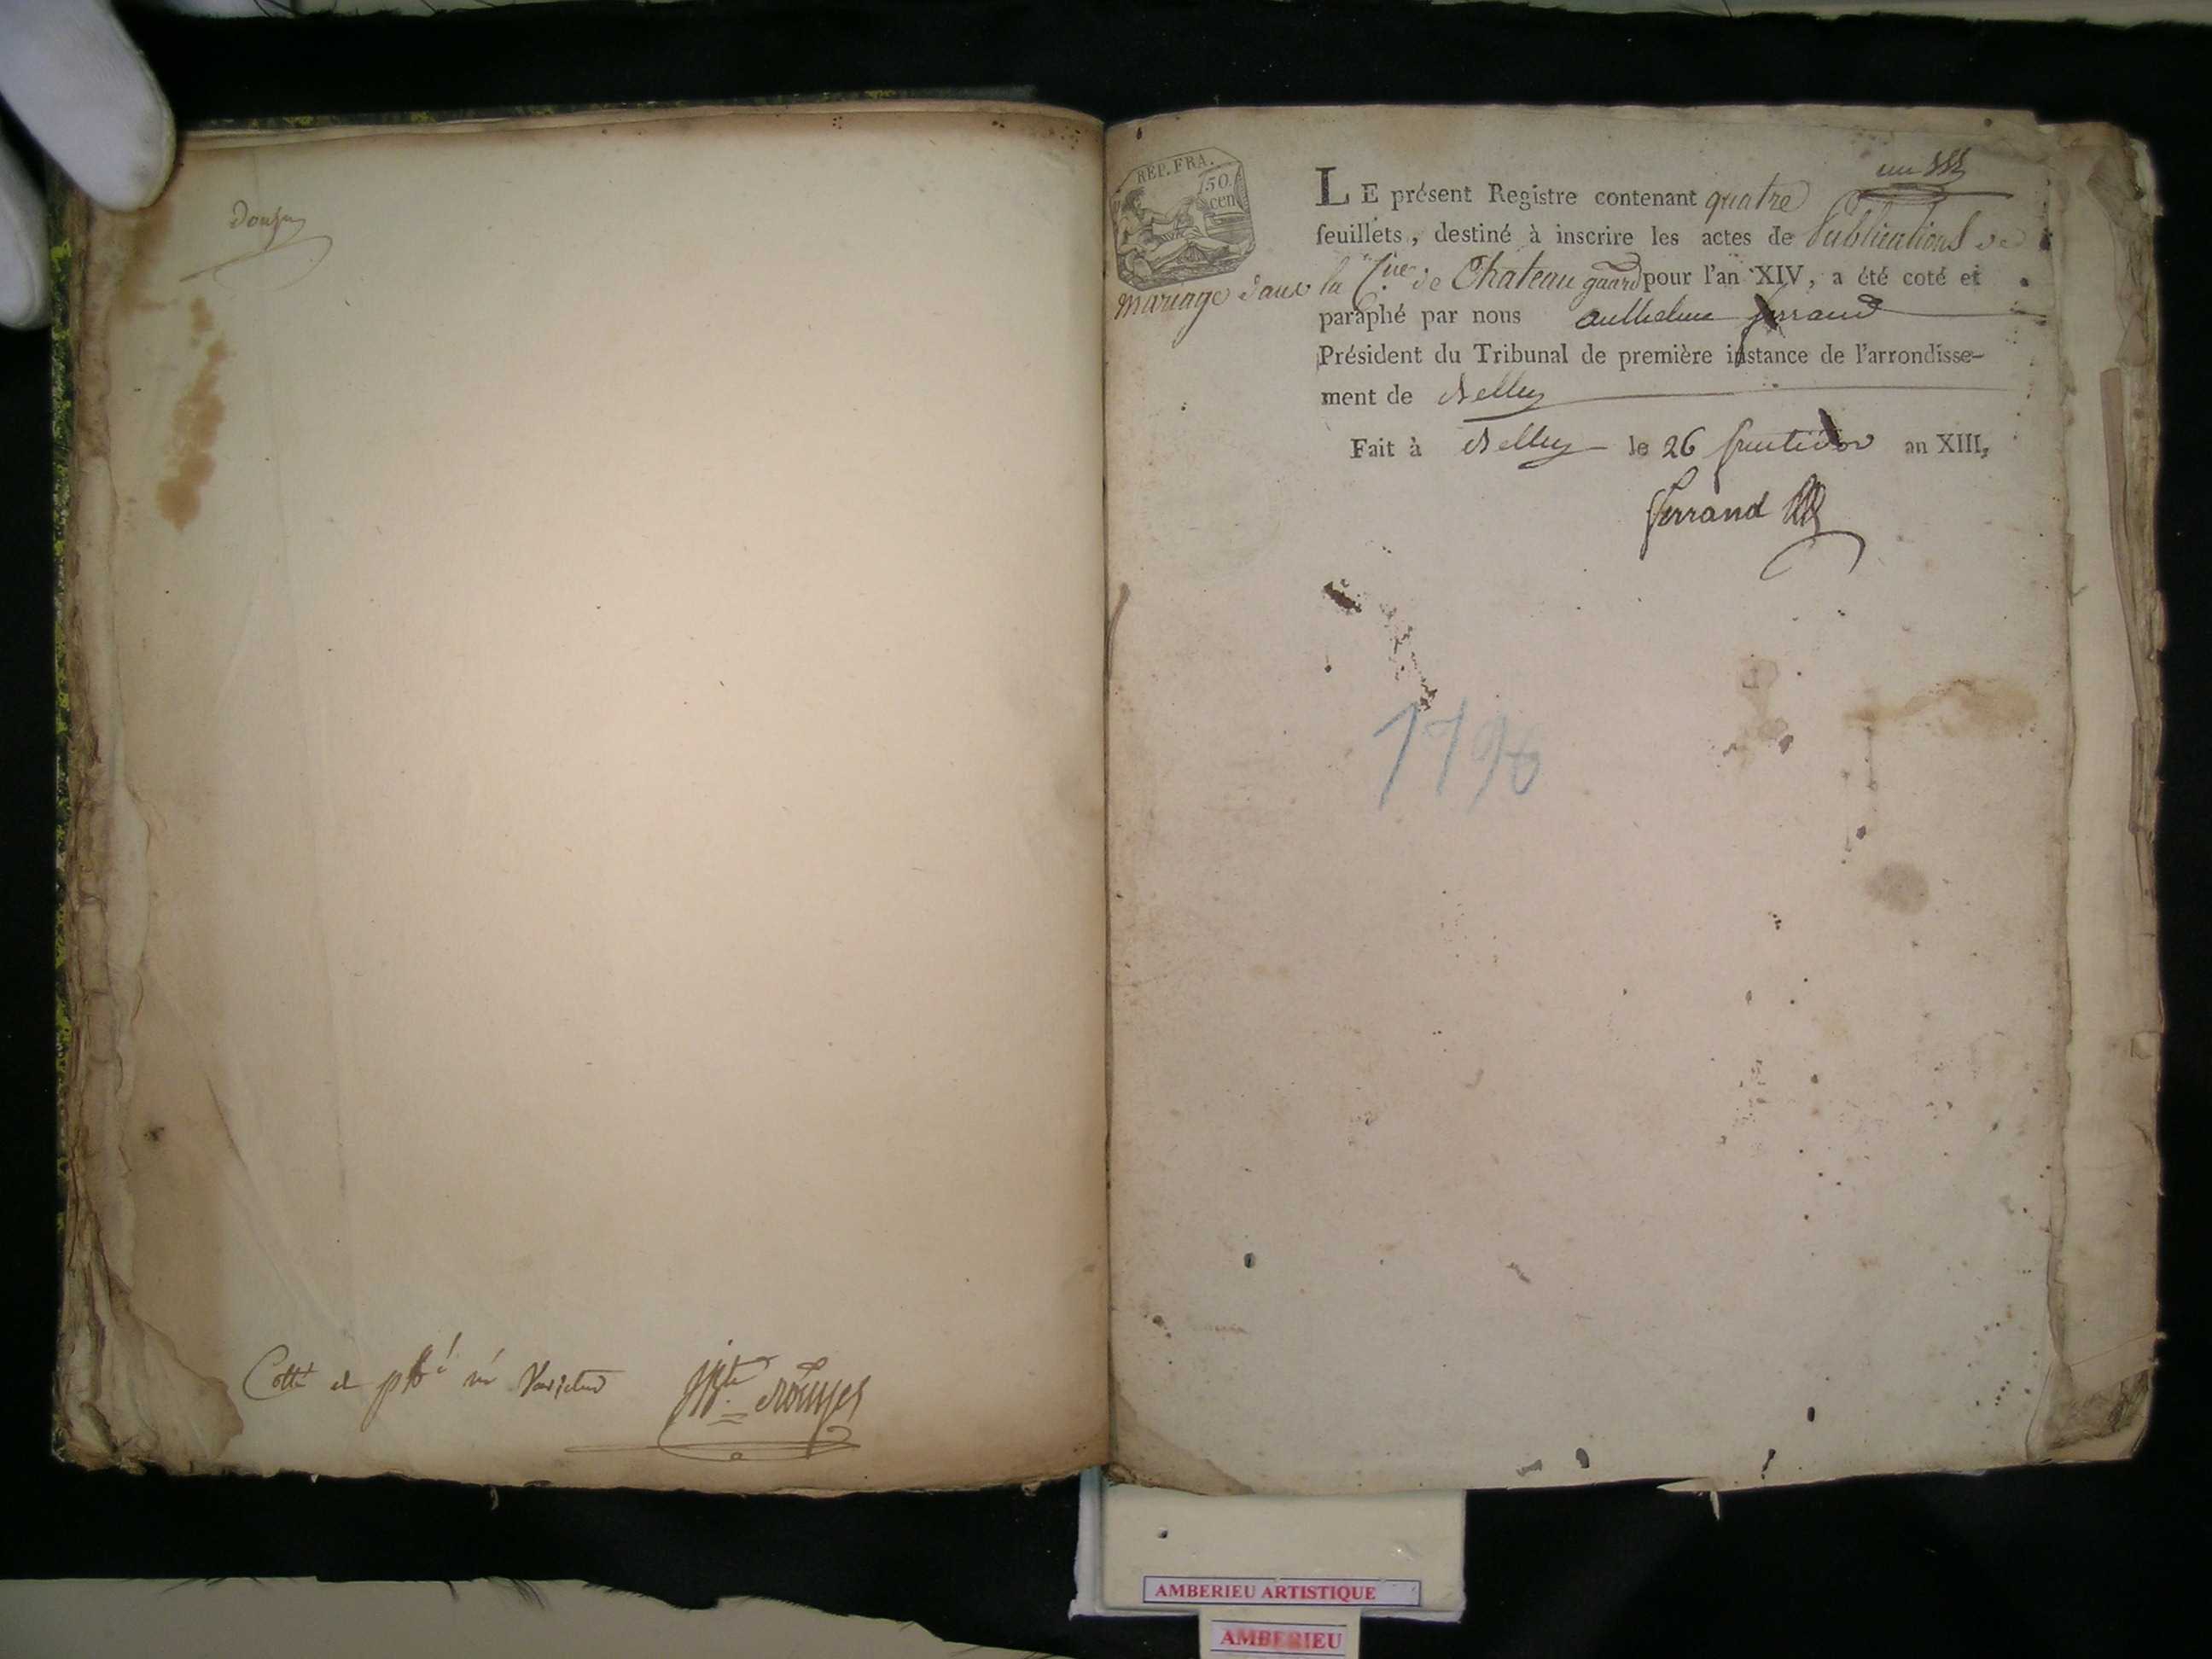 Cotté et
REP. FRA.
50.
cen
un
LE présent Registre contenant quatre
feuillets, destiné à inscrire les actes de Publications de
mariage dans la Cne de Chateau gaard pour l'an XIV, a été coté et
paraphé par nous anthelme ferrand
Président du Tribunal de première instance de l'arrondisse-
ment de Belley
Fait à Belley le 26 fructidor an XIII,
ferrand
1796
AMBERIEU ARTISTIQUE
AMBERIEU